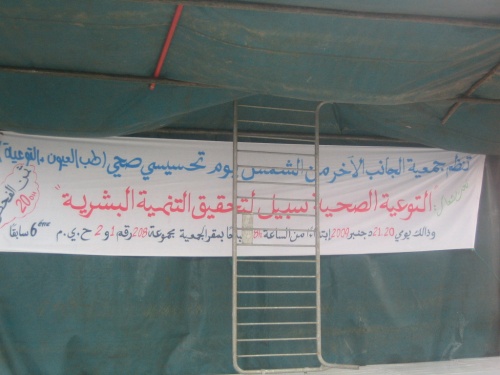 تنظم جمعية الجانب الآخر من الشمس يوم تحسيسي صحي (طب العيون والتوعية)
"التوعية الصحية سبيل لتحقيق التنمية البشرية"
وذالك يومي 20 21 دجنبر 2009 ابتداءا من الساعة بمقر الجمعية مجموعة 208 رقم 1 و 2 ح.ي.م 6ème سابقا
ثمن الفحص
20